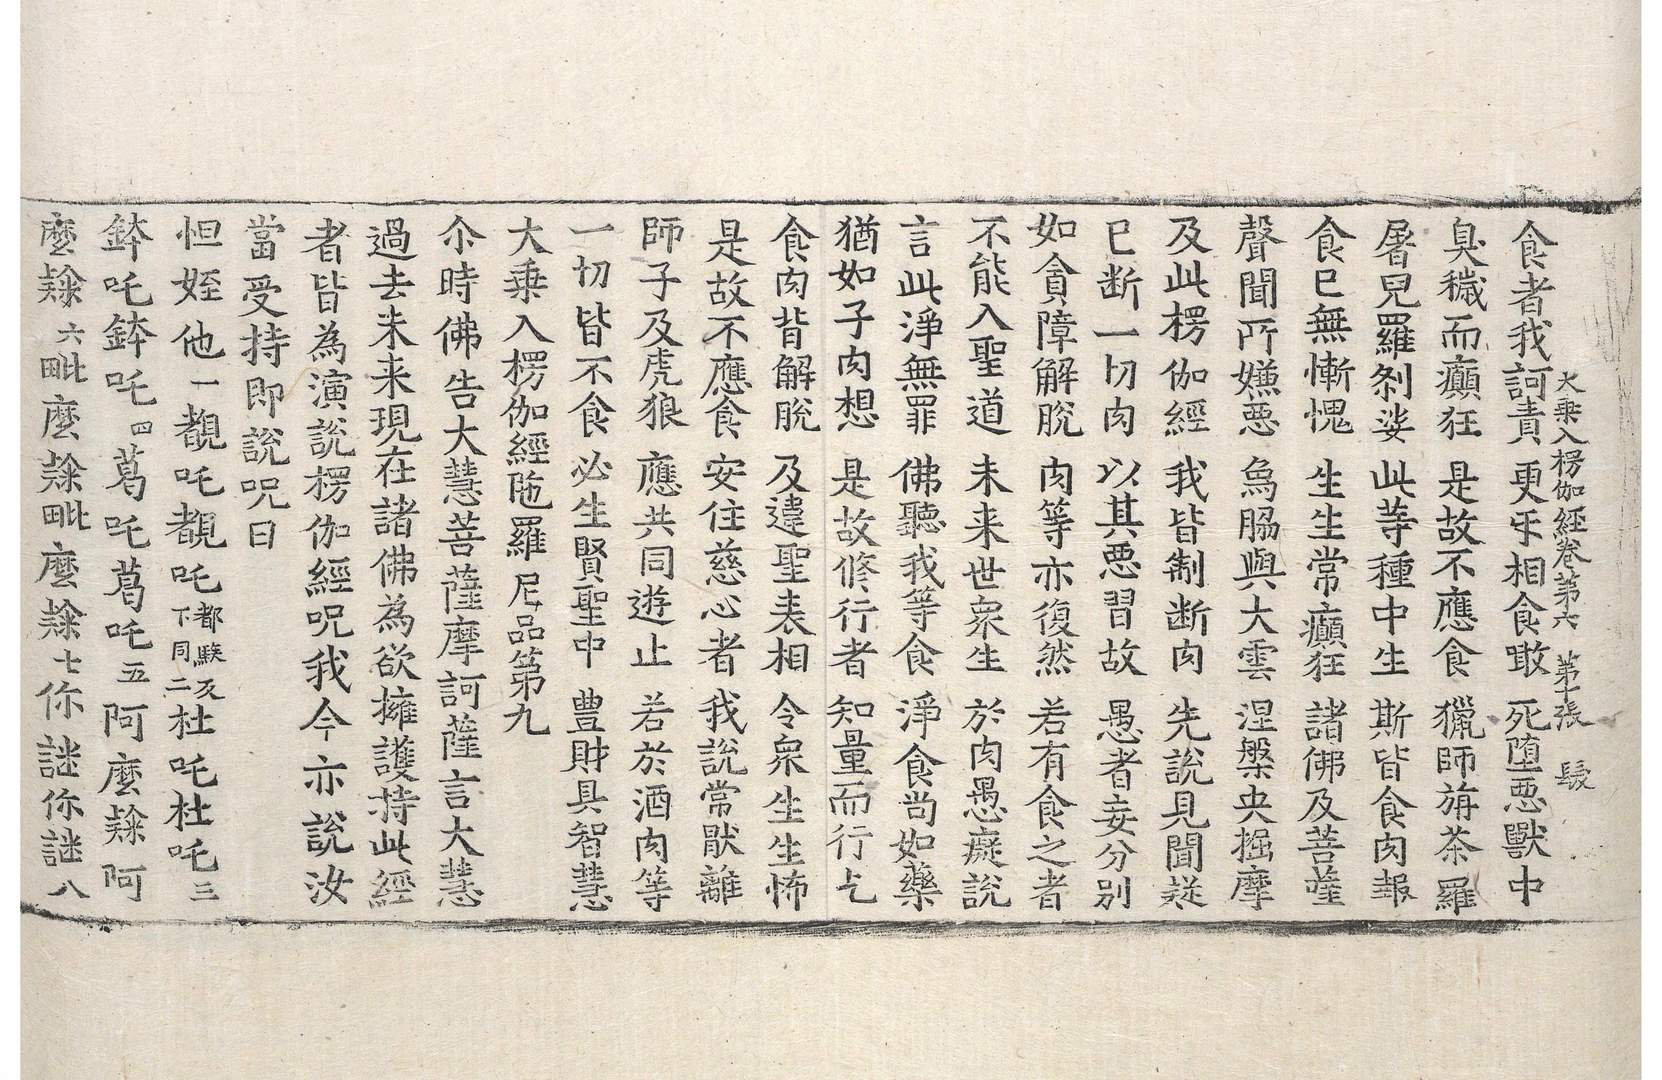 大乘入楞伽經卷第六 第十張 髮
食者我訶責 更乎相食噉 死墮惡獸中
臭穢而癲狂 是故不應食 獵師旃茶羅
屠兒羅刹娑 此等種中生 斯皆食肉報
食已無慚愧 生生常癲狂 諸佛及菩薩
聲聞所嫌惡 象脇與大雲 涅槃央掘摩
及此楞伽經 我皆制断肉 先說見聞疑
已断一切肉 以其惡習故 愚者妄分別
如貪障解脫 肉等亦復然 若有食之者
不能入聖道 未來世衆生 於肉愚癡說
言此淨無罪 佛聽我等食 淨食尚如藥
猶如子肉想 是故修行者 知量而行乞
食肉背解脫 及違聖表相 令衆生生怖
是故不應食 安住慈心者 我說常猒離
師子及虎狼 應共同遊止 若於酒肉等
一切皆不食 必生賢聖中 豐財具智慧
大乘入楞伽經陁羅尼品第九
尒時佛告大慧菩薩摩訶薩言大慧
過去未来現在諸佛為欲擁護持此經
者皆為演說楞伽經呪我今亦說汝
當受持即說呪曰
怛姪他一覩吒覩吒都騃反下同二杜吒杜吒三
鉢吒鉢吒四葛吒葛吒五阿麼隸阿
麼隸六毗麼隸毗麼隸七你謎你謎八